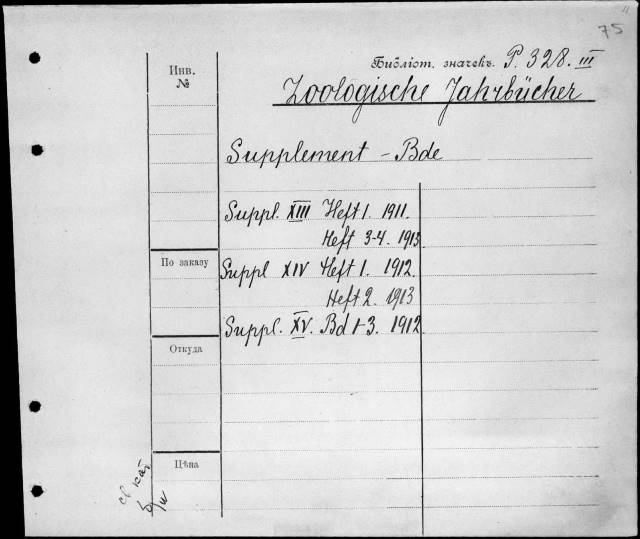 75
Библіот. значекъ P. 328. III
Инв.
№
Zoologische Jahrbücher
Supplement – Bde
Suppl. XIII Heft 1. 1911.
Heft 3-4. 1913
По заказу
Suppl XIV Heft 1. 1912.
Heft 2. 1913
Suppl. XV. Bd 1-3. 1912
Откуда
Цѣна